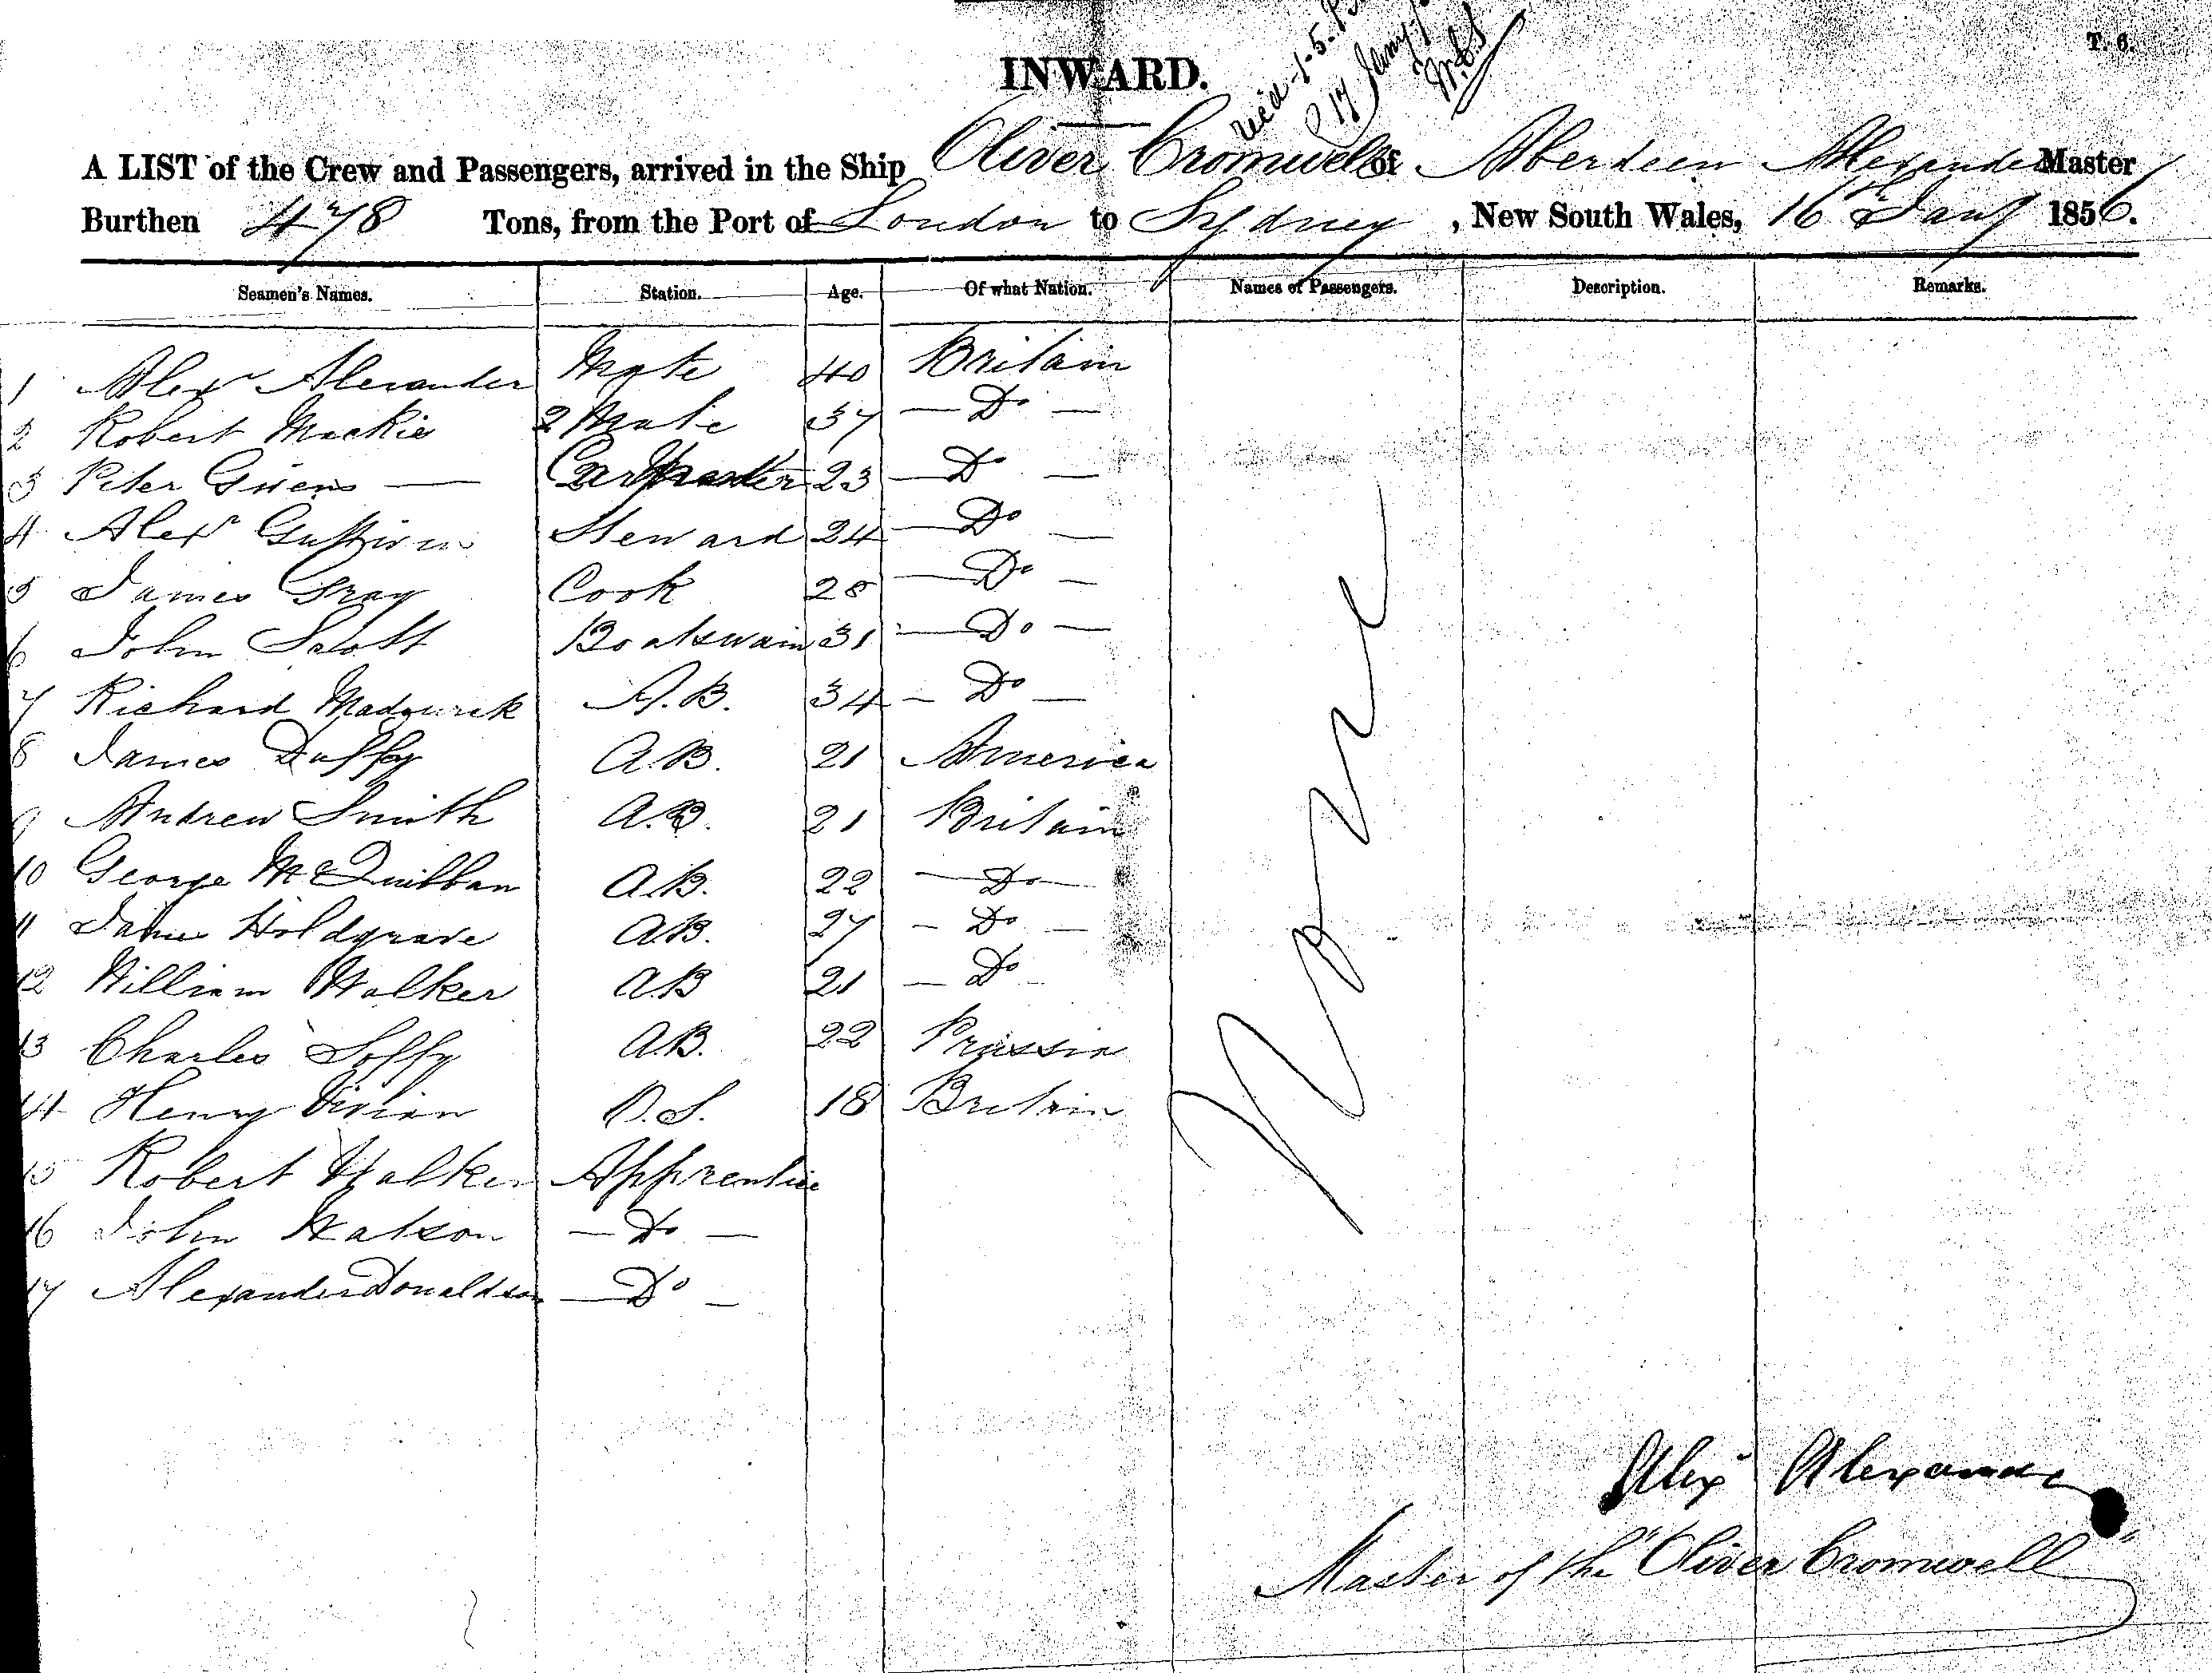 T. 6.
INWARD.
A LIST of the Crew and Passengers, arrived in the Ship Oliver Cromwell of Aberdeen Alexander Master
Burthen 478 Tons, from the Port of London to Sydney, New South Wales, 16th Jany 1856.
Seamen's Names. Station. Age. Of what Nation. Names of Passengers. Description. Remarks.
1 Alexr Alexander Mate 40 Britain
2 Robert Mackie 2 Mate 37 — Do —
3 Peter — Carpenter 23 — Do —
4 Alexr Steward 24 — Do —
5 James Gray Cook 28 — Do —
6 John Scott Boatswain 31 — Do —
7 Richard A.B. 34 — Do —
8 James Duffy A.B. 21 America
9 Andrew Smith A.B. 21 Britain
10 George A.B. 22 — Do —
11 James Holdgrave A.B. 27 — Do —
12 William Walker A.B 21 — Do —
13 Charles A.B. 22 Prussia
14 Henry Vivian O.S. 18 Britain
15 Robert Walker Apprentice
16 John Watson — Do —
17 Alexander Donaldson — Do —
None
Alexr Alexander
Master of the "Oliver Cromwell"